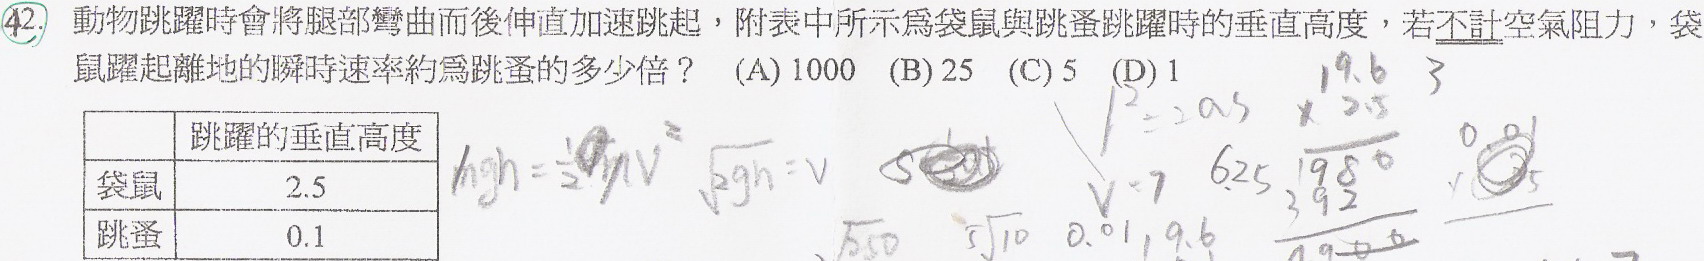 42. 動物跳躍時會將腿部彎曲而後伸直加速跳起，附表中所示為袋鼠與跳蚤跳躍時的垂直高度，若不計空氣阻力，袋
鼠躍起離地的瞬時速率約為跳蚤的多少倍？ (A) 1000 (B) 25 (C) 5 (D) 1
跳躍的垂直高度
袋鼠 2.5
跳蚤 0.1
mgh = ½mv²
√2gh = v
V² = 2as
V = 7
19.6
× 2.5
1980
392
3
6.25
√50
5√10
0.01
19.6